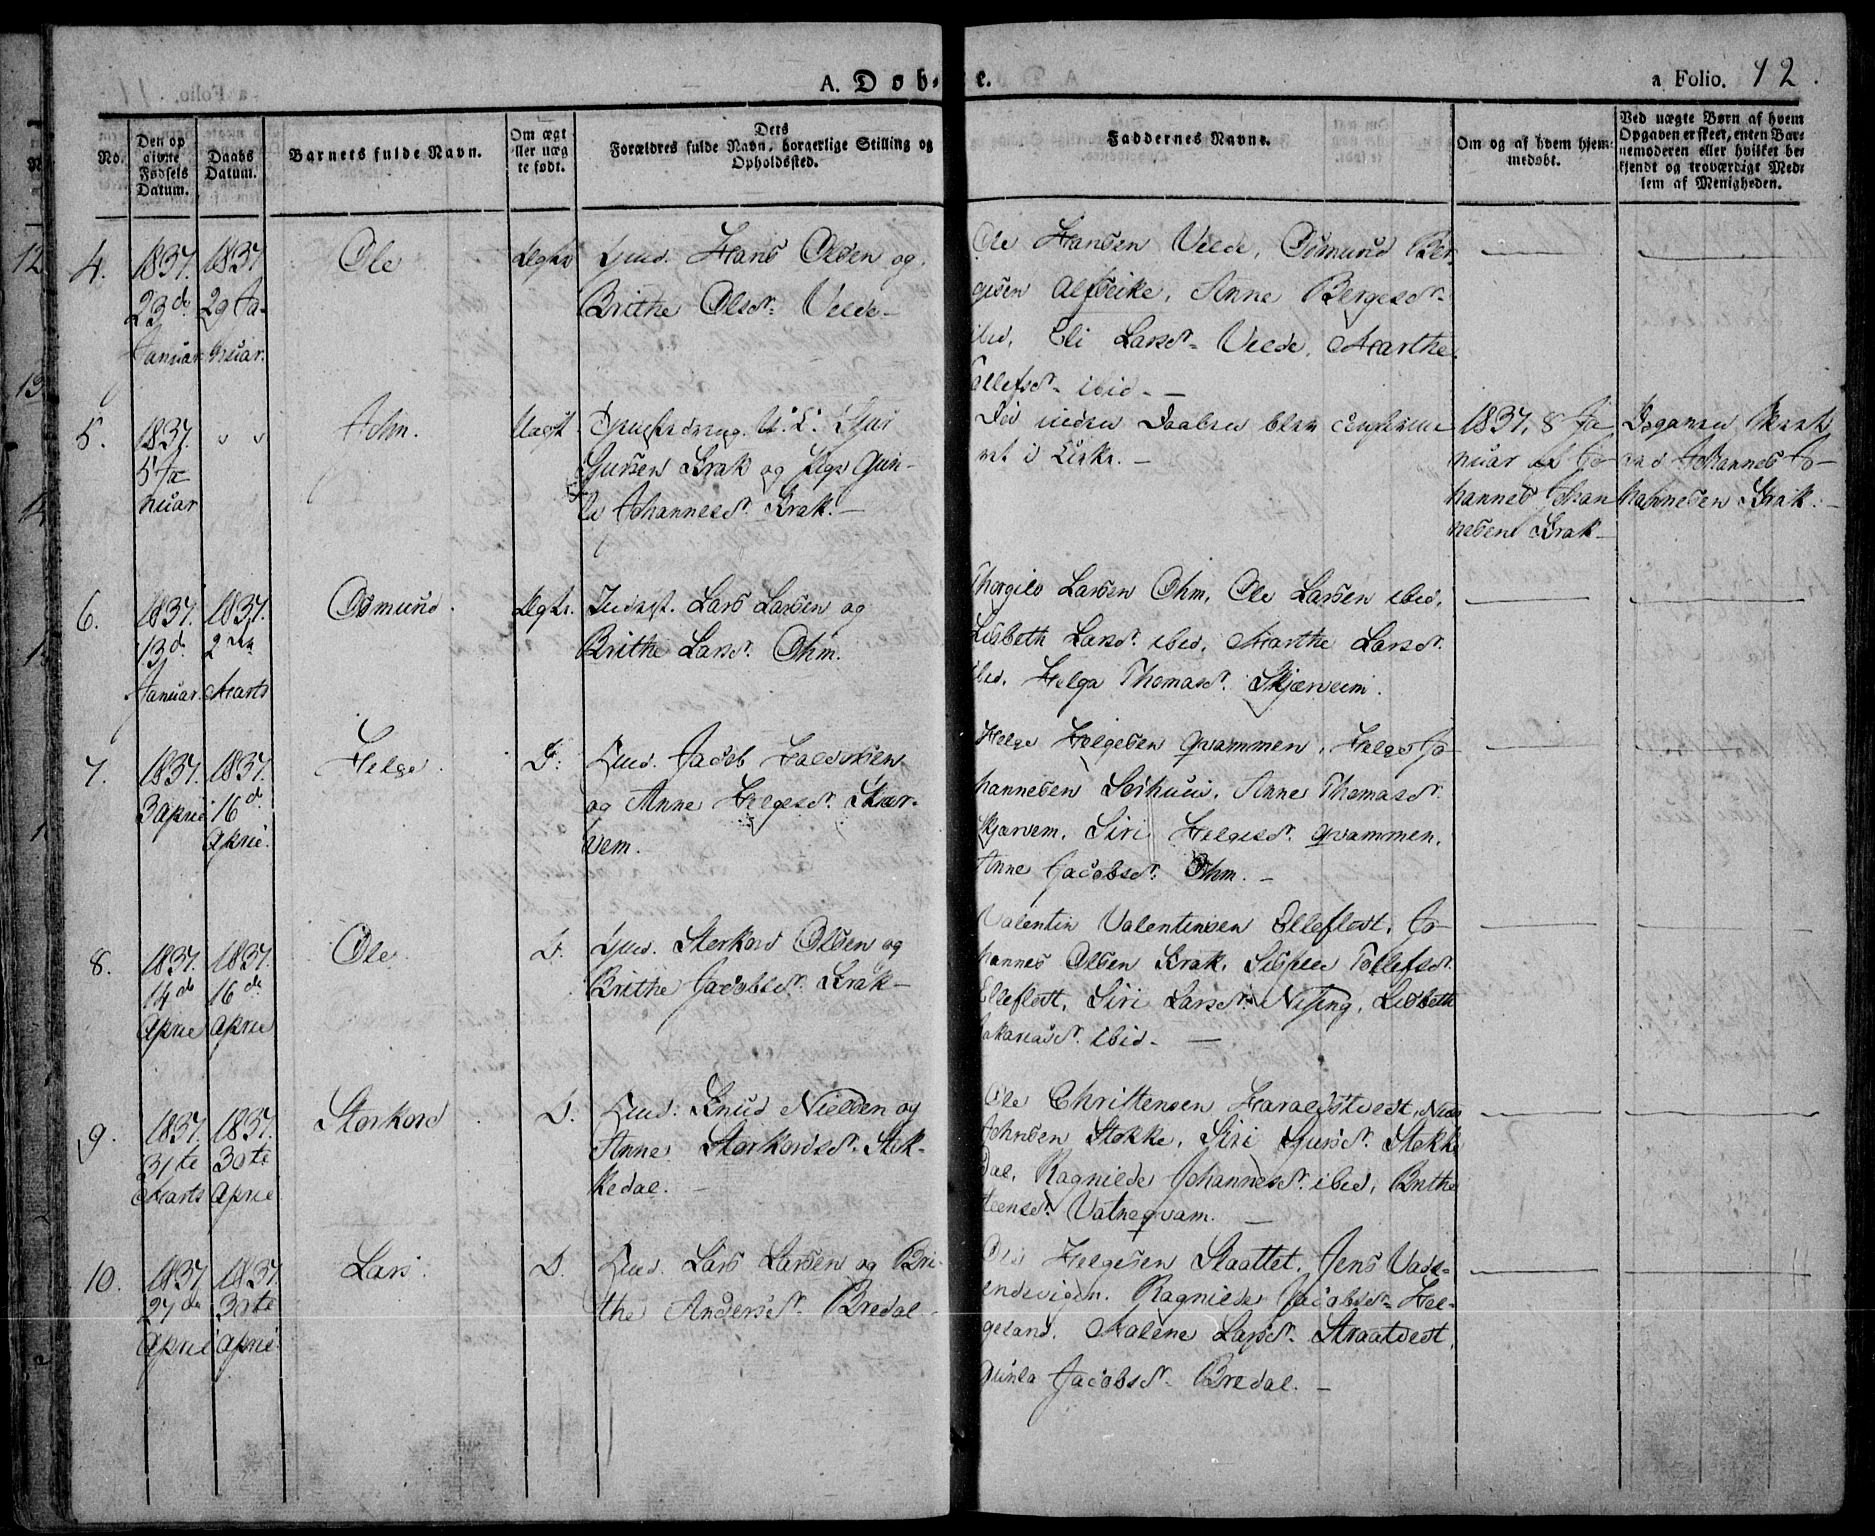 A. Døb-
e.
a Folio. 12.
No.
Den op
givne
Fødsels
Datum.
Daabs
Datum.
Barnets fulde Navn.
Om ægt
eller uæg
te født.
Dets
Forældres fulde Navn, borgerlige Stilling og
Opholdssted.
Faddernes Navne.
Om og af hvem hjem-
medøbt.
Ved uægte Børn af hvem
Opgaven er skeet, enten Bar-
nemoderen eller hvilket be-
kjendt og troværdigt Med-
lem af Menigheden.
4.
1837.
23d
Januar
1837
29 Ja-
nuar.
Ole
Ægte
Hans Olsen og
Brithe Olsdr. Velde
Ole Hansen Velde, Osmund Ber-
gesen Alfseike, Anne Bergesdr.
ibid, Eli Larsdr. Velde, Marthe
Tollefsdr. ibid.
5.
1837.
5 Ja
nuar
" "
John.
Uægt.
Sjur
Sjursen Krak og Pige Gun-
la Johannesdr. Krak.
Før inden Daaben blev confirme
ret i Kirke.
1837, 8 Ja
nuar af Jo-
hannes Johan
nesen Krak
Opgaven skeet
ved Johannes Jo-
hannesen Krak.
6.
1837.
13d.
Januar.
1837.
2den
Marts
Osmund.
Ægte.
Inderst. Lars Larsen og
Brithe Larsdr. Ohm.
Thorgils Larsen Ohm, Ole Larsen ibid,
Lisbeth Larsdr. ibid, Marthe Larsdr.
ibid, Helga Thomasdr. Skjærveim.
7.
1837.
3 April
1837.
16d.
April.
Helge.
D:
Jacob Halvorsen
og Anne Helgesdr. Skær-
vem.
Helge Helgesen Qvammen, Helge Jo-
hannesen Sørhuus, Anne Thomasdr.
Skjærvem, Siri Helgesdr. Qvammen,
Anne Jacobsdr. Ohm.
8.
1837.
14de
April
1837.
16de
April
Ole
D.
Storkord Olsen og
Brithe Jacobsdr. Krak
Valentin Valentinsen Elleflodt, Jo-
hannes Olsen Krak, Tollefsdr.
Elleflodt, Siri Larsdr. Lisbeth
Zakariasdr. ibid.
9.
1837.
31te
Marts
1837.
30te
April
Storkord
D.
Knud Nielsen og
Anne Storkordsdr. Stok-
kedal.
Ole Christensen Haraldstvedt, Niels
Johnsen Stokke, Siri Sjursdr. Stokke
dal, Ragnilde Johannesdr. ibid, Brithe
Steensdr. Vatneqvam.
10.
1837
27de
April
1837
30te
April.
Lars.
D.
Lars Larsen og Bri-
the Andersdr. Bredal
Ole Helgesen Staattet, Jens Vads-
endvigen, Ragnilde Jacobsdr. Hel-
geland, Malene Larsdr. Straatvedt,
Gunla Jacobsdr. Bredal.